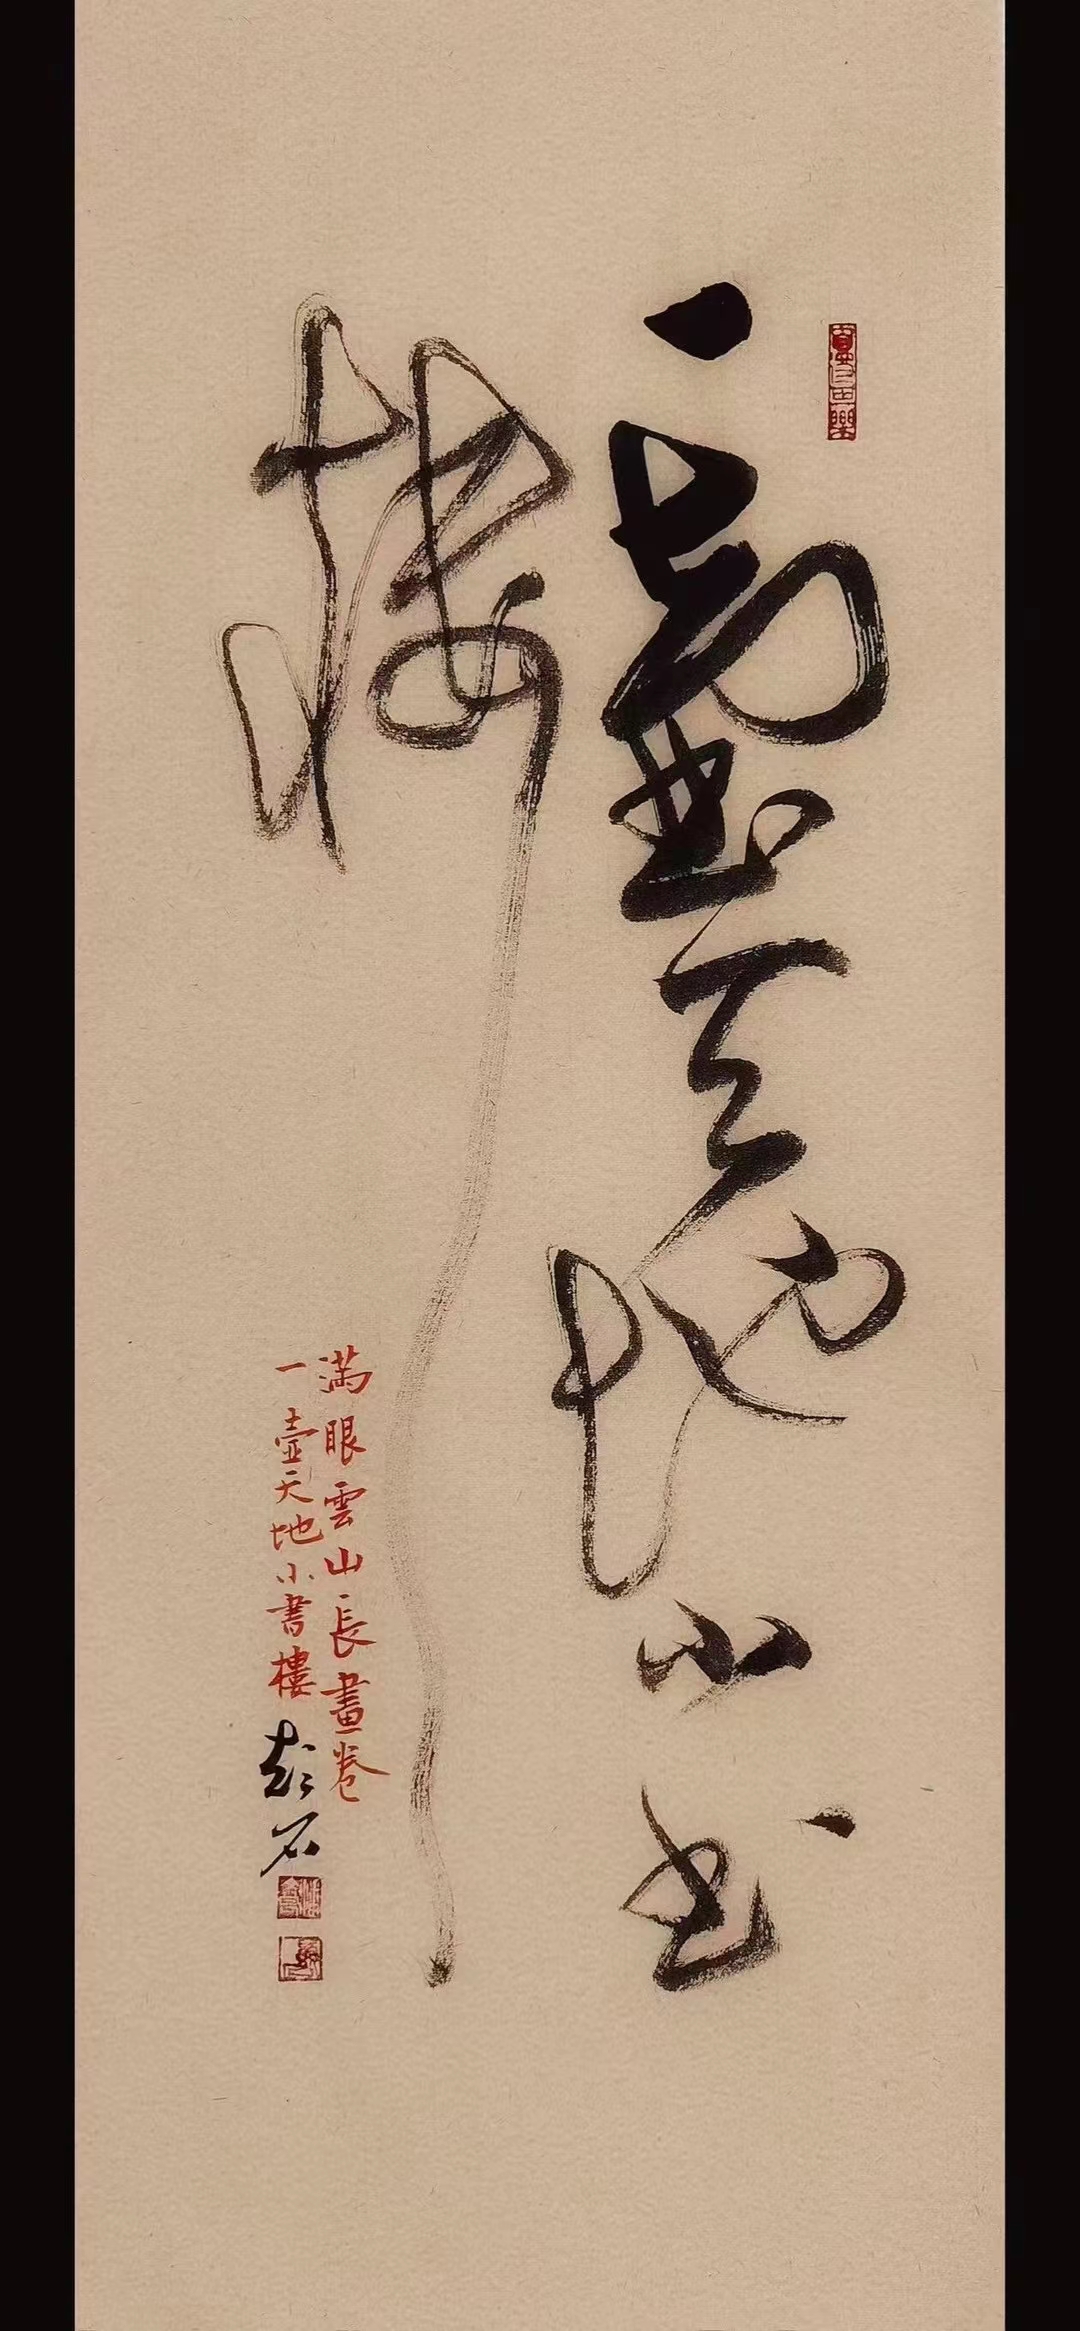 一壺天地小書
樓
满眼雲山長畫卷
一壺天地小書樓